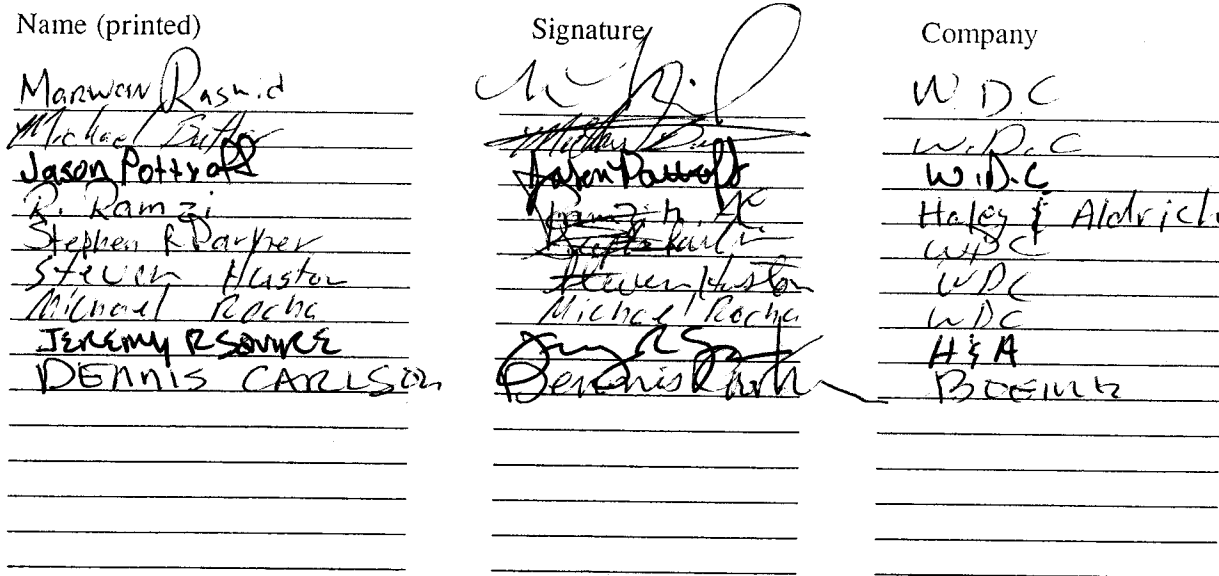 Name (printed) Signature Company
Marwan Rashid W D C
Michael Butler W.D.C
Jason Pottroff Jason Pottroff W.D.C
R. Ramzi Ramzi Haley & Aldrich
Stephen R Parker WDC
Steven Huston Steven Huston WDC
Michael Rocha Michael Rocha WDC
JEREMY R H & A
DENNIS CARLSON Dennis BOEING